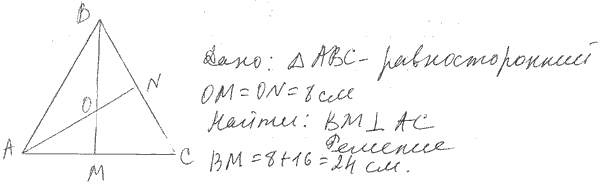 B
N
O
A
M
C
Дано: △ ABC – равносторонний
OM = ON = 8 см
Найти: BM ⊥ AC
Решение
BM = 8 + 16 = 24 см.